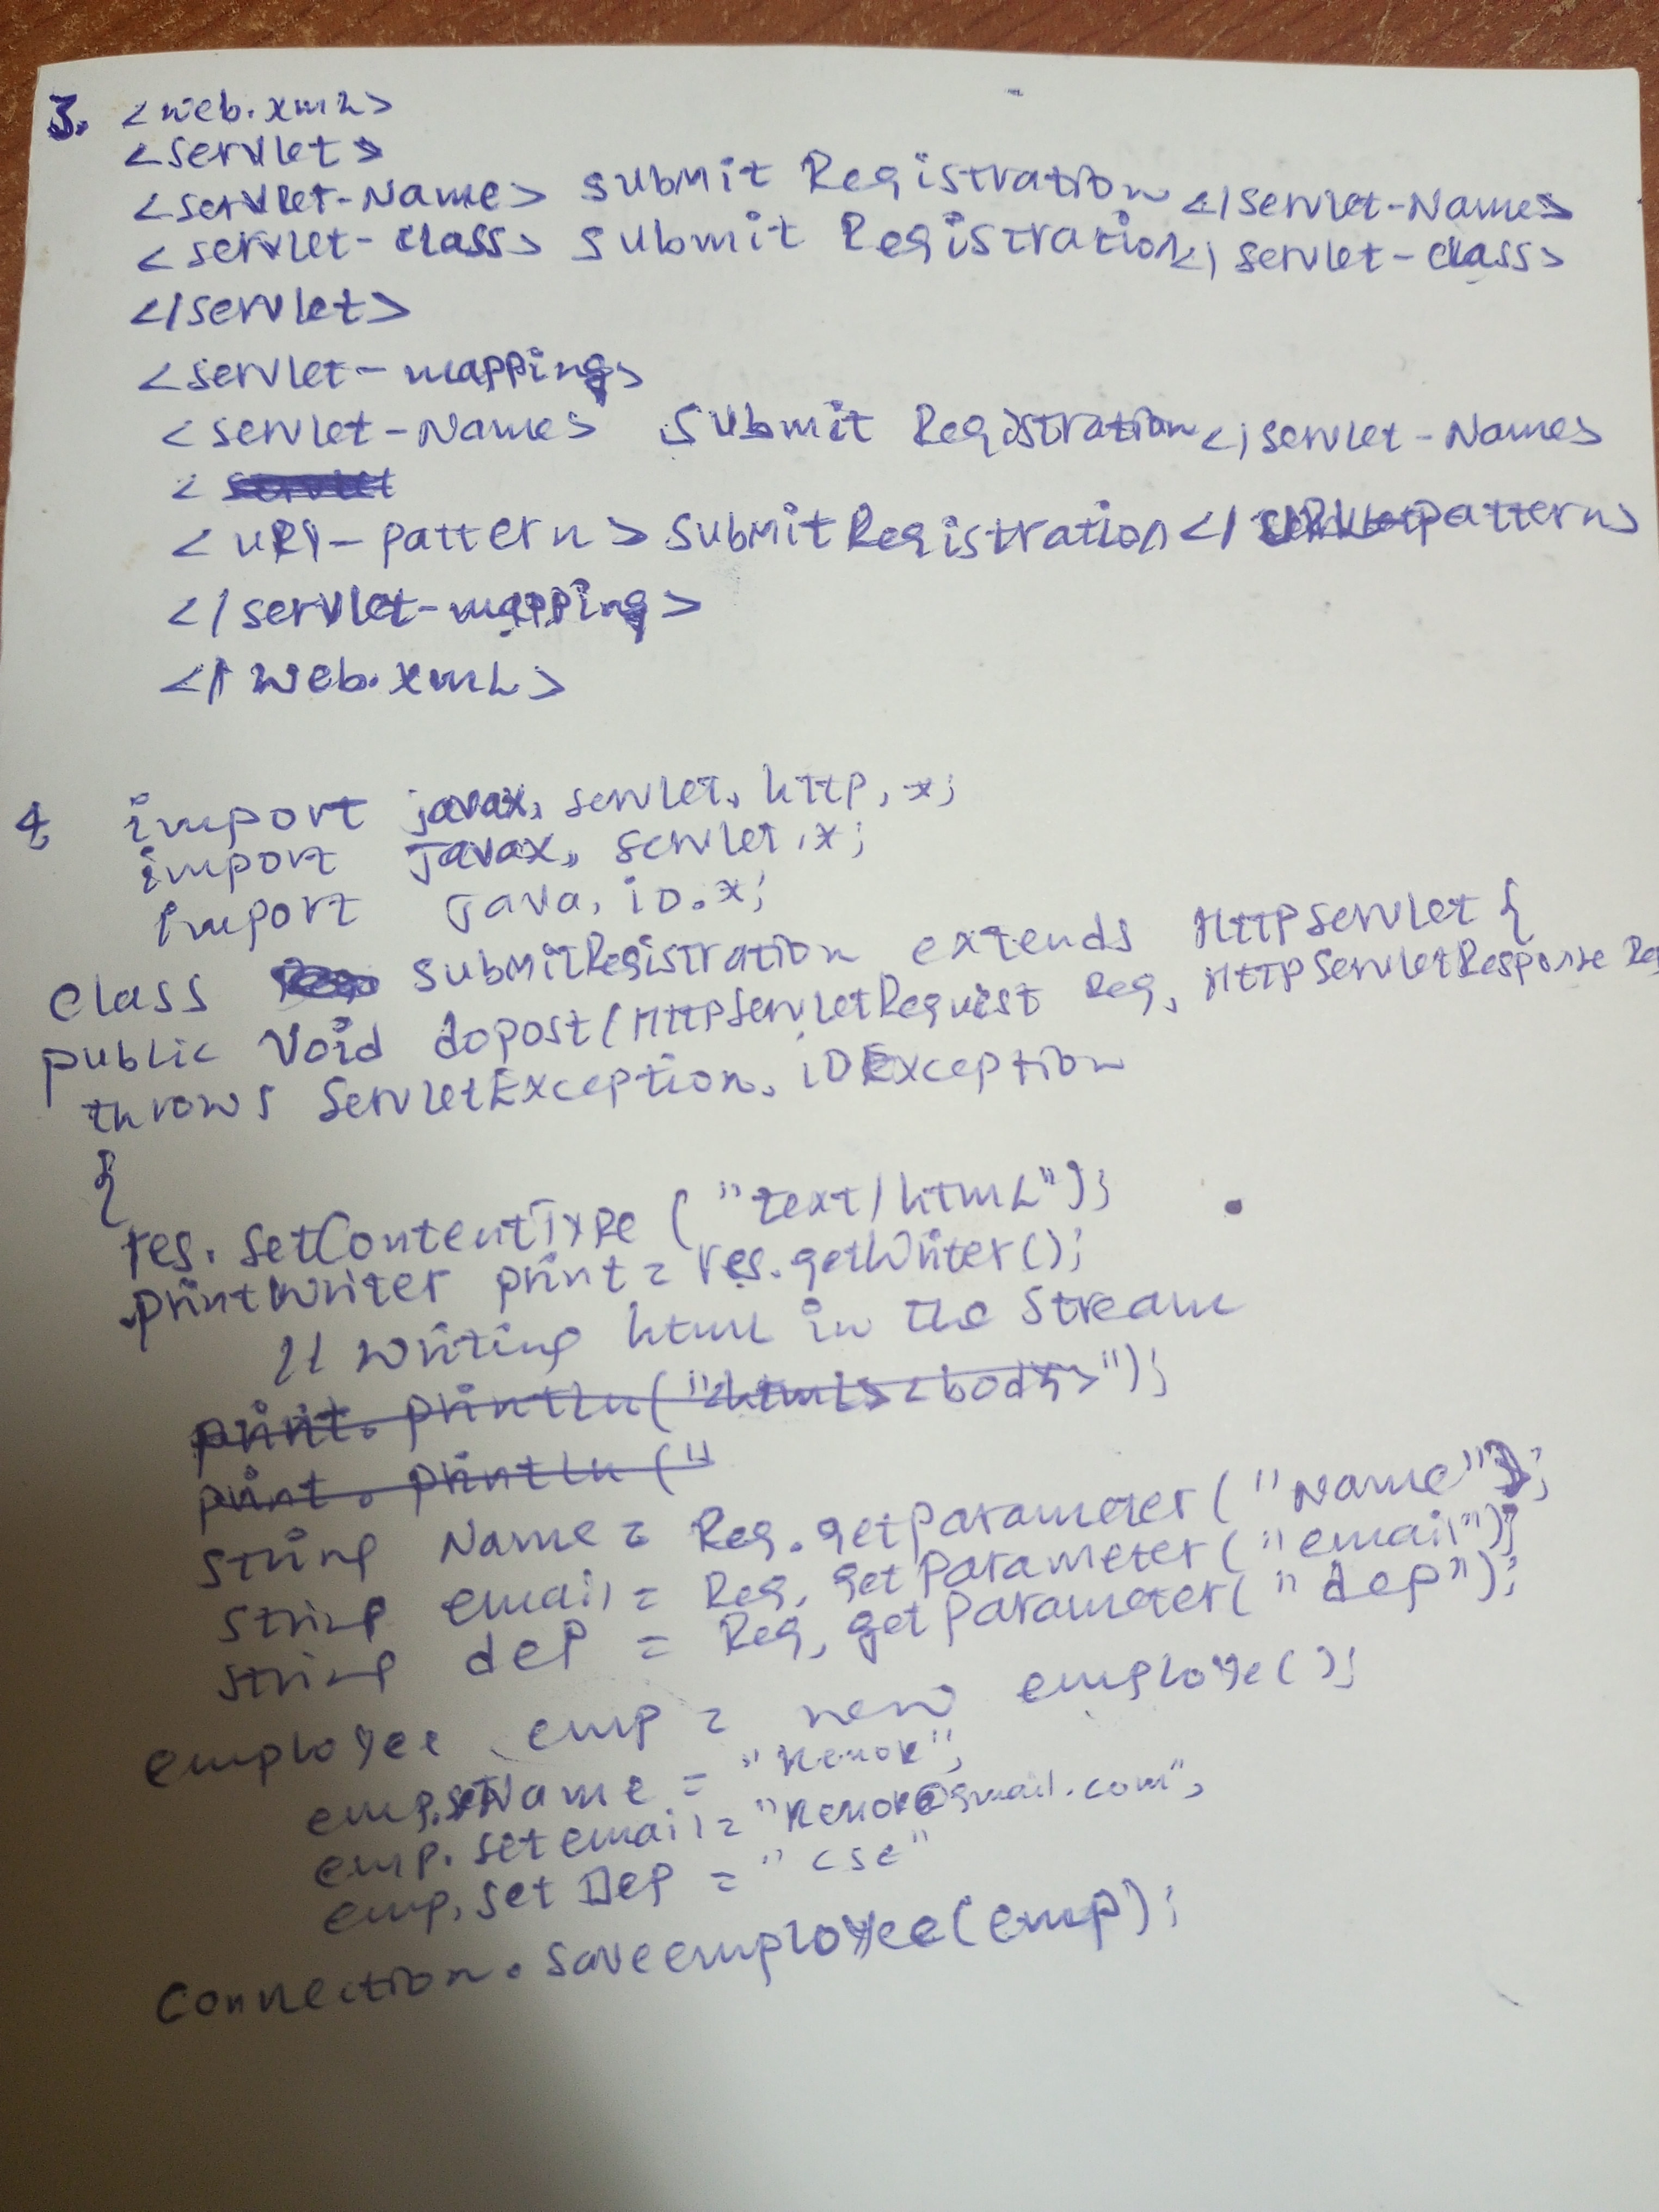 3. <web.xmL>
<servlet>
<servlet-Name> submit Registration </servlet-Name>
<servlet-class> submit Registration</servlet-class>
</servlet>
<servlet-mapping>
<servlet-Name> submit Registration</servlet-Name>
< servlet
<URl-pattern> submitRegistration</ URL-pattern>
</servlet-mapping>
</web.xmL>
4 import javax.servlet.http.*;
import javax.servlet.*;
import java.io.*;
class submitRegistration extends HttpServlet {
public void dopost(HttpServletRequest Req, HttpServletResponse Res
throws ServletException, iOException
{
res.setContentType ("text/htmL");
printWriter print = res.getWriter();
// writing html in the stream
print.println("<html><body>");
print.println("
string Name = Req.getparameter("Name");
string email = Req.getparameter("email");
string dep = Req.getparameter("dep");
employee emp = new employe();
emp.setName = "Kenok",
emp.set email = "Kenok@gmail.com",
emp.set Dep = "cse"
connection.saveemployee(emp);